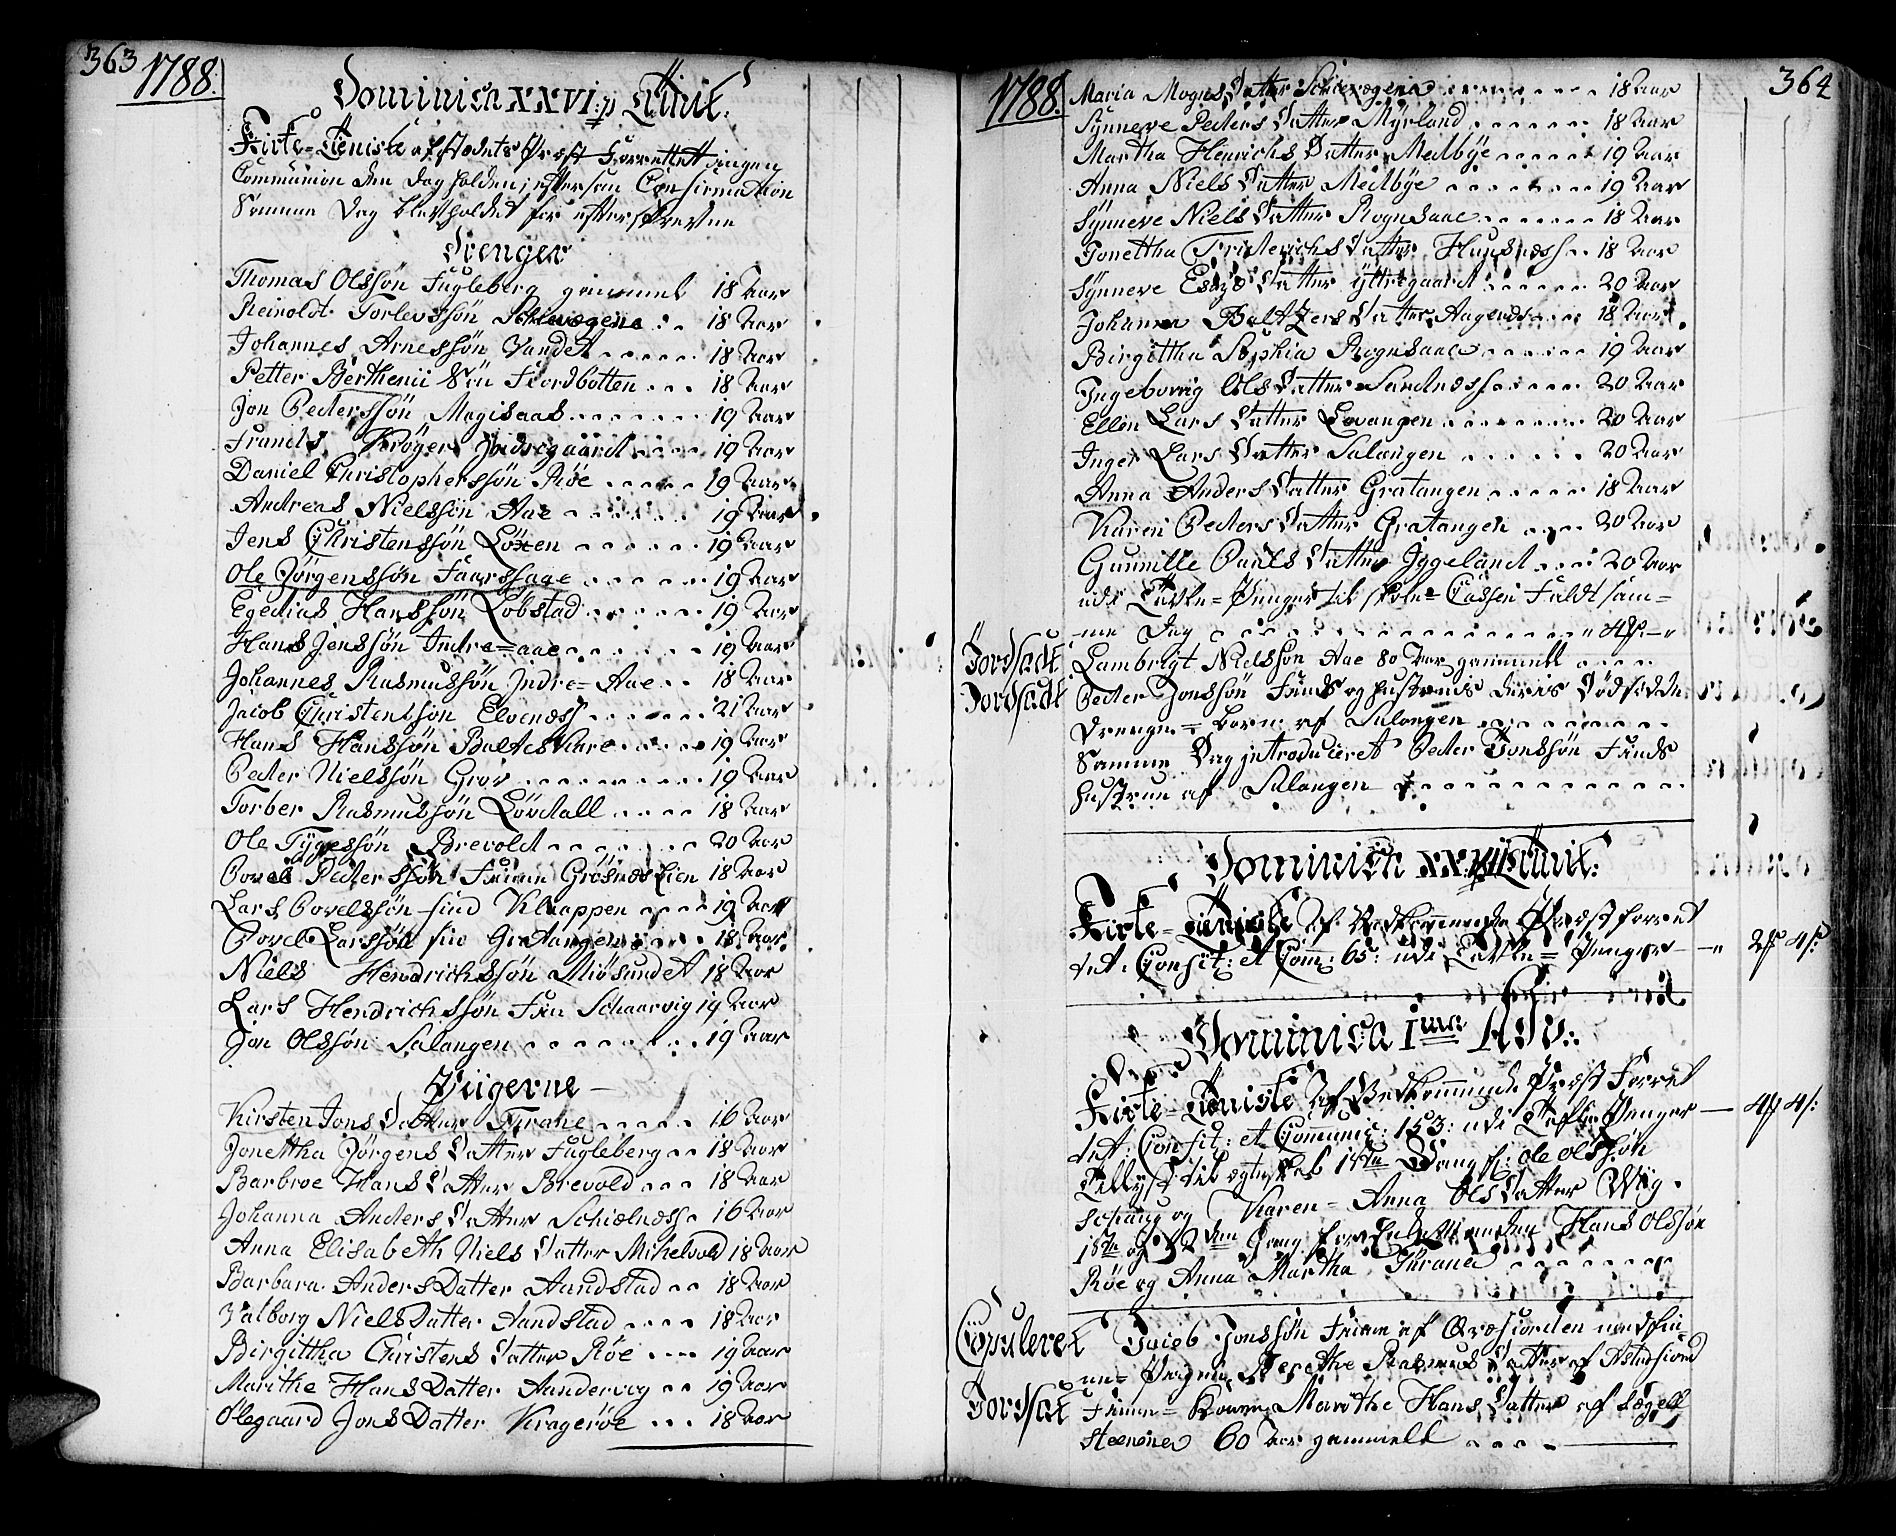 363
1788.
Dominica XXVI: p Trinit:
Kirke-Tieniste af stædets Præst Forrettet ingen
Communion den Dag holden, eftersom Confirmation
Samme Dag blev holdet for efterskrevne
Drenger
Thomas Olssøn Fugleberg gammel 18 Aar
Reinoldt Torlevssøn Schievogene 18 Aar
Johannes Arnessøn Vandet 18 Aar
Petter Berthenii Søn Fiordbotten 18 Aar
Jon Pederssøn Magisaas 19 Aar
Frands Krøger Indregaard 19 Aar
Daniel Christopherssøn Røe 19 Aar
Andreas Nielssøn Aae 19 Aar
Jens Christenssøn Løxen 19 Aar
Ole Jørgenssøn Faarssaae 19 Aar
Egedius Hanssøn Løbstad 19 Aar
Hans Jenssøn Indre=aae 19 Aar
Johannes Rasmussøn Indre=Aae 18 Aar
Jacob Christenssøn Elvenæss 21 Aar
Hans Hanssøn Balteskare 19 Aar
Peder Nielssøn Grov 19 Aar
Torber Rasmussøn Løvdall 18 Aar
Ole Tygessøn Brevold 20 Aar
Povel Pederssøn Finn Grøsnes Lien 18 Aar
Lars Povelssøn find Klappen 19 Aar
Povel Larssøn fin Gratangen 18 Aar
Niels Hendrichssøn Miøsundet 18 Aar
Lars Hendrichssøn Fin Schaarvig 19 Aar
Jon Olssøn Salangen 19 Aar
Piigerne
Kirsten Jons Datter Furahe 16 Aar
Jonettha Jørgens Datter Fugleberg 18 Aar
Barbroe Hans Datter Brevold 18 Aar
Johanna Anders Datter Schiælnæss 16 Aar
Anna Elisabeth Niels Datter Mikelvold 18 Aar
Barbara Anders Datter Aandstad 18 Aar
Valborg Niels Datter Aandstad 18 Aar
Birgittha Christens Datter Røe 19 Aar
Marithe Hans Datter Aandervog 19 Aar
Olegaard Jons Datter Kragerøe 18 Aar
364
1788.
Maria Mogns Datter Schievogene 18 Aar
Synneve Peders Datter Myrland 18 Aar
Martha Henrichs Datter Medbye 19 Aar
Anna Niels Datter Medbye 19 Aar
Synneve Niels Datter Rognsaae 18 Aar
Jonettha Friderichs Datter Hunsnæss 18 Aar
Synneve Datter Yttregaard 20 Aar
Johanna Baltzers Datter Aagenæs 18 Aar
Birgittha Sophia Rognsaae 19 Aar
Ingeborrig Ols Datter Sandnæss 20 Aar
Ellen Lars Datter Lavangen 20 Aar
Inger Lars Datter Salangen 20 Aar
Anna Anders Datter Gratangen 18 Aar
Karen Peders Datter Gratangen 20 Aar
Gunnille Pauls Datter Iggeland 20 Aar
udi Tavle=Penger til skole=Cassen Faldt sam=
me Dag
Jordsadt Lambrigt Nielssøn Aae 80 Aar gammell
Jordsadt Peder Jonssøn Finds og hustrues deris Dødfødde
Drenge=barn af Salangen
Samme Dag introduceret Peder Jonssøn Finds
hustrue af Salangen
Dominica XXVII Trinit:
Kirke-Tieniste af Vedkommende Præst forret
tet: Confit: et Com: 65: udi Tavle=Penger
Dominica Ima Adv:
Kirke-Tieniste af Vedkommende Præst Forret
tet: Confit: et Communic: 153: udi Tafle Penger
Tillyst til ægteskab Gang S: Ole Olssøn
og Karen=Anna Ols Datter Wiig
og Gang Hans Olssøn
Røe og Anna Martha Furahe
Copuleret Jacob Jonssøn Finn af Qvæfiorden med fin
ne=Pigen Berethe Rasmus Datter af Astafiord
Jordsat Finne=Konne Marithe Hans Datter af
steenene 60 Aar gammell